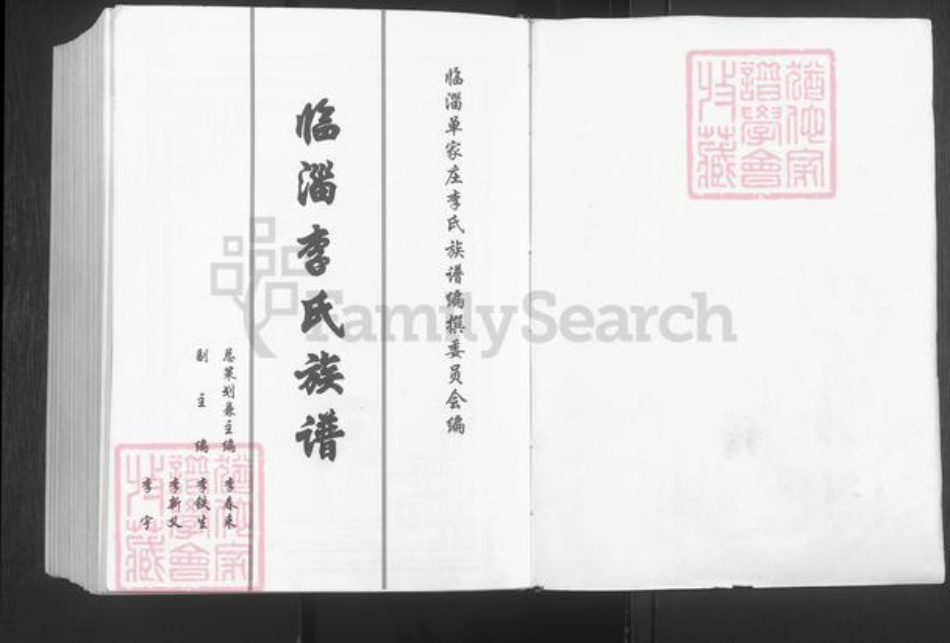 临淄单家庄李氏族谱编撰委员会编
临淄李氏族谱
总策划兼主编 李春来
副主编 李铁生
李新义
李宇
猶他家
譜學會
收藏
猶他家
譜學會
收藏
FamilySearch